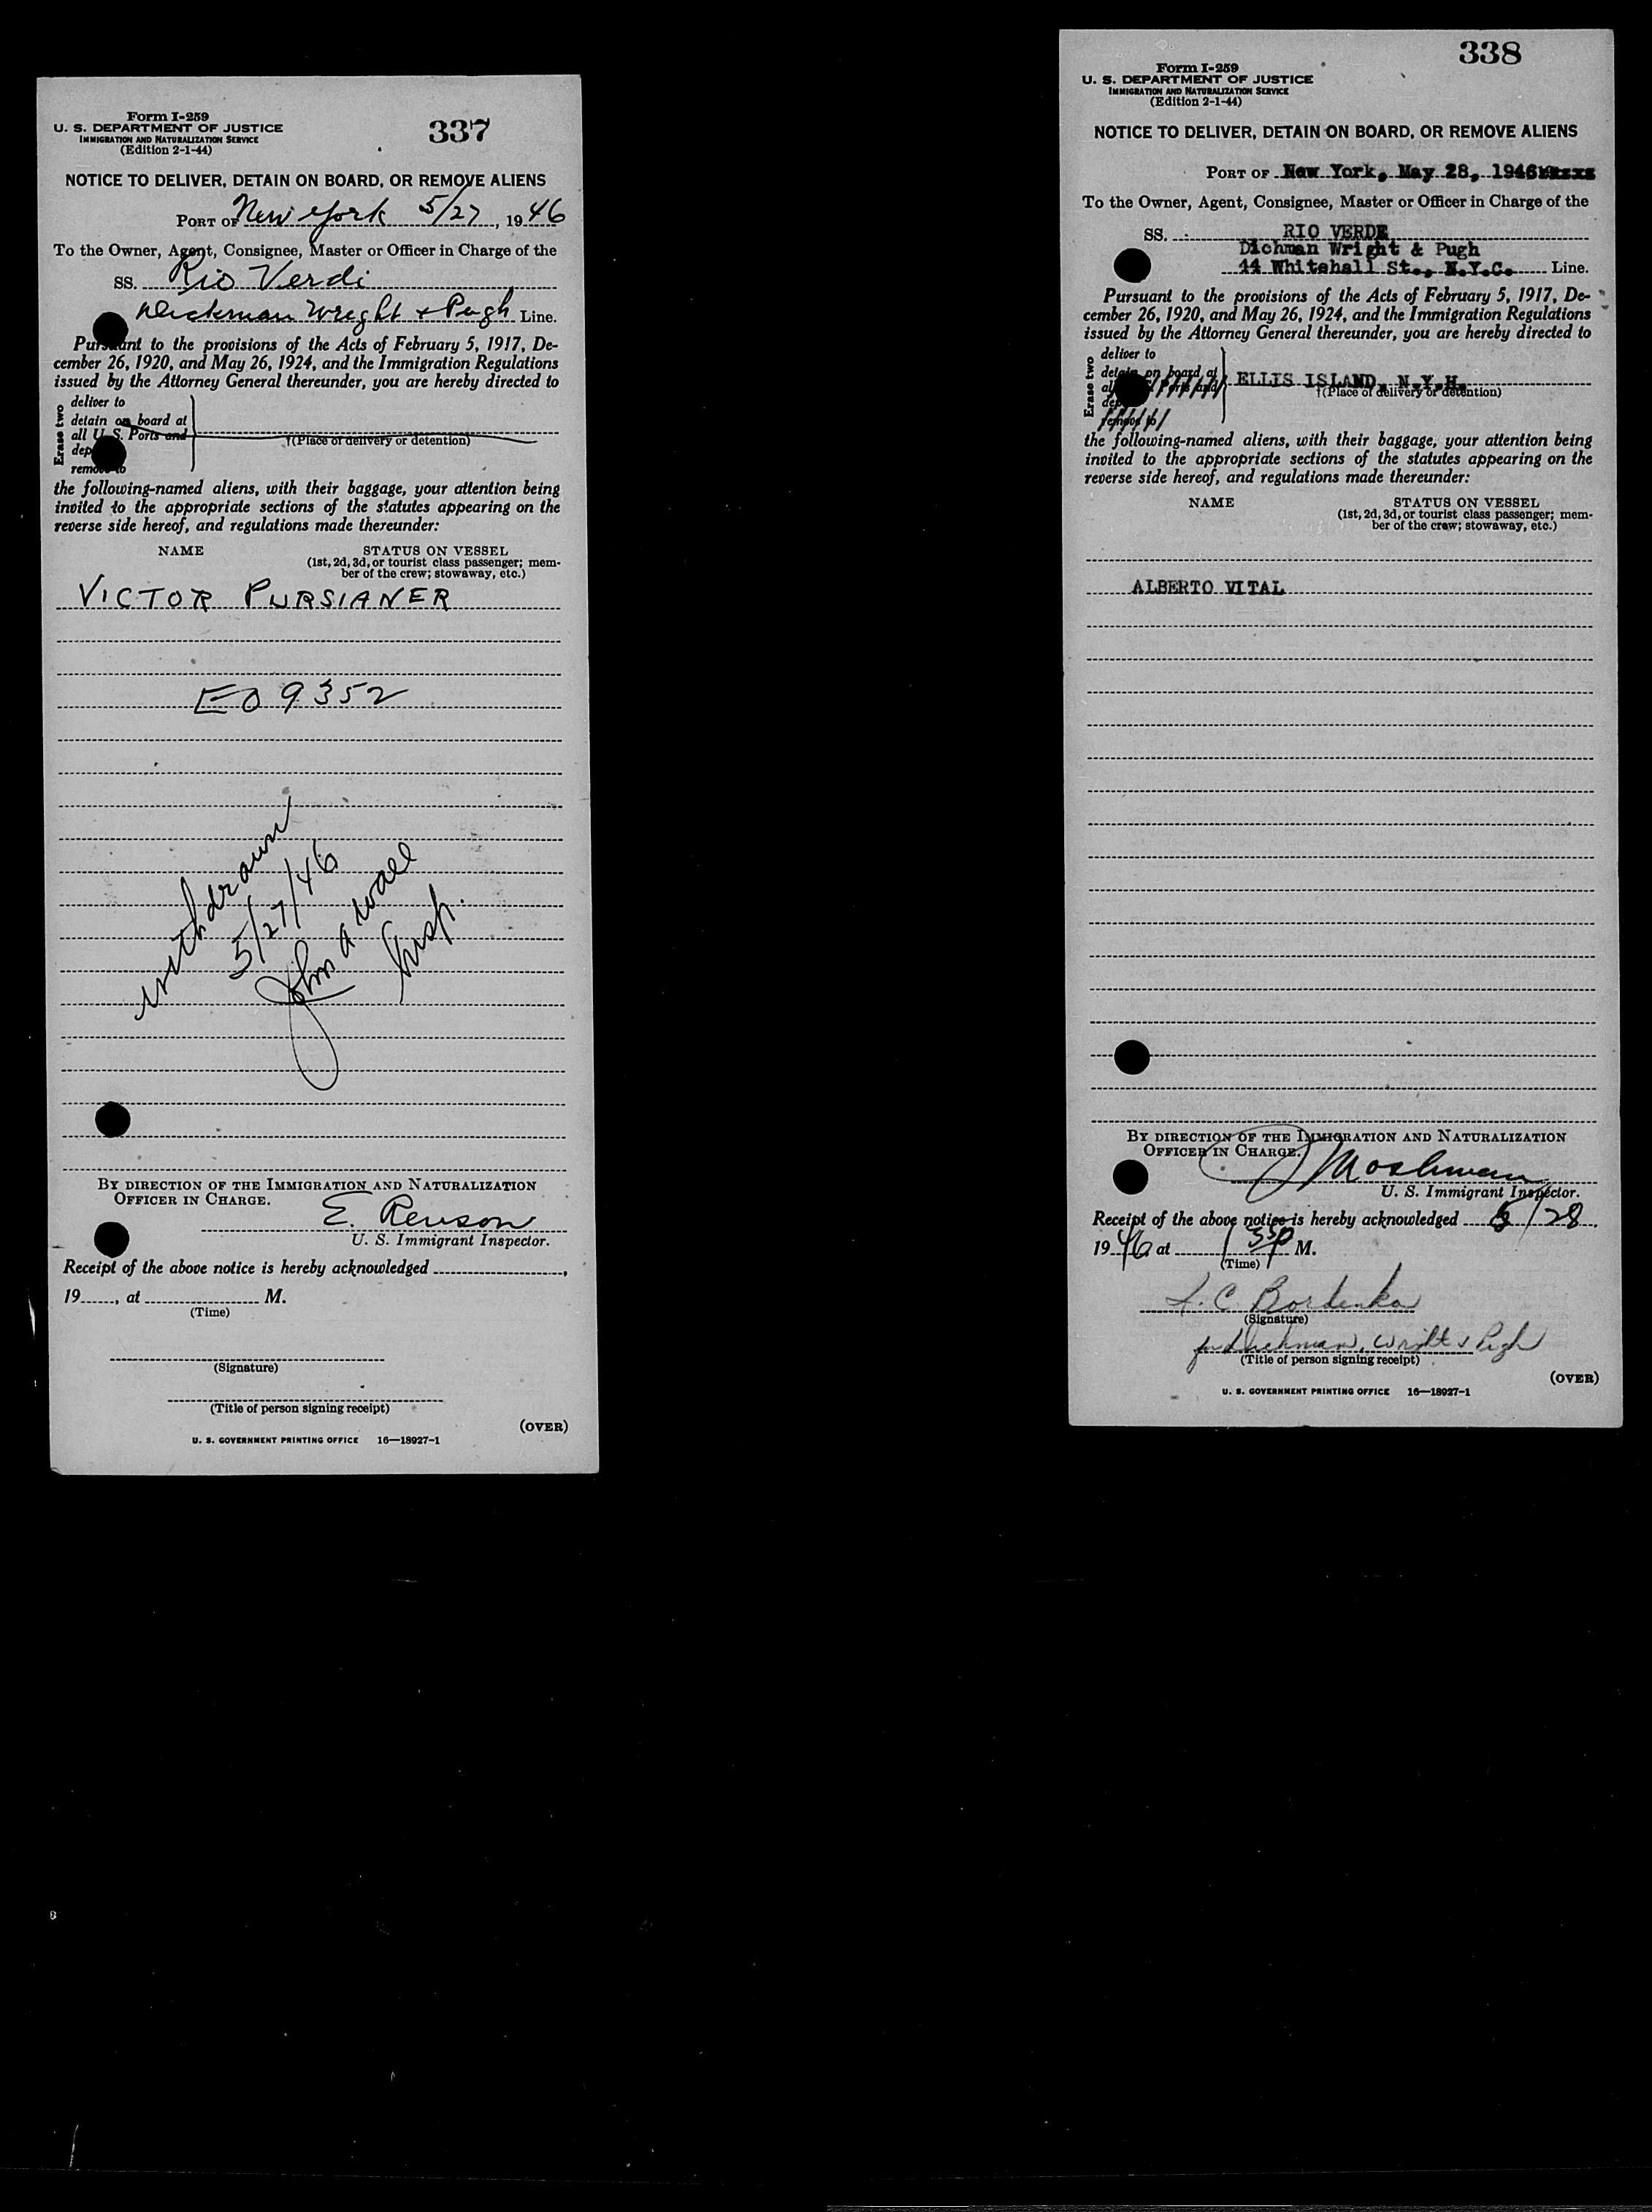 337
Form I-259
U. S. DEPARTMENT OF JUSTICE
IMMIGRATION AND NATURALIZATION SERVICE
(Edition 2-1-44)
NOTICE TO DELIVER, DETAIN ON BOARD, OR REMOVE ALIENS
PORT OF New York 5/27, 1946
To the Owner, Agent, Consignee, Master or Officer in Charge of the
SS. Rio Verdi
Dickman Wright & Pugh Line.
Pursuant to the provisions of the Acts of February 5, 1917, De-
cember 26, 1920, and May 26, 1924, and the Immigration Regulations
issued by the Attorney General thereunder, you are hereby directed to
Erase two
deliver to
detain on board at
all U. S. Ports and
dep
remove to
†(Place of delivery or detention)
the following-named aliens, with their baggage, your attention being
invited to the appropriate sections of the statutes appearing on the
reverse side hereof, and regulations made thereunder:
NAME STATUS ON VESSEL
(1st, 2d, 3d, or tourist class passenger; mem-
ber of the crew; stowaway, etc.)
VICTOR PURSIANER
EO 9352
withdrawn
5/27/46
John A Wall
Insp.
BY DIRECTION OF THE IMMIGRATION AND NATURALIZATION
OFFICER IN CHARGE.
E. Renson
U. S. Immigrant Inspector.
Receipt of the above notice is hereby acknowledged ,
19 , at M.
(Time)
(Signature)
(Title of person signing receipt)
(OVER)
U. S. GOVERNMENT PRINTING OFFICE 16—18927-1
338
Form I-259
U. S. DEPARTMENT OF JUSTICE
IMMIGRATION AND NATURALIZATION SERVICE
(Edition 2-1-44)
NOTICE TO DELIVER, DETAIN ON BOARD, OR REMOVE ALIENS
PORT OF New York, May 28, 1946
To the Owner, Agent, Consignee, Master or Officer in Charge of the
SS. RIO VERDE
Dichman Wright & Pugh
44 Whitehall St., N.Y.C. Line.
Pursuant to the provisions of the Acts of February 5, 1917, De-
cember 26, 1920, and May 26, 1924, and the Immigration Regulations
issued by the Attorney General thereunder, you are hereby directed to
Erase two
deliver to
detain on board at
all U. S. Ports and
dep
remove to
ELLIS ISLAND, N.Y.H.
†(Place of delivery or detention)
the following-named aliens, with their baggage, your attention being
invited to the appropriate sections of the statutes appearing on the
reverse side hereof, and regulations made thereunder:
NAME STATUS ON VESSEL
(1st, 2d, 3d, or tourist class passenger; mem-
ber of the crew; stowaway, etc.)
ALBERTO VITAL
BY DIRECTION OF THE IMMIGRATION AND NATURALIZATION
OFFICER IN CHARGE.
U. S. Immigrant Inspector.
Receipt of the above notice is hereby acknowledged 5/28,
1946, at M.
(Time)
(Signature)
for Dichman, Wright & Pugh
(Title of person signing receipt)
(OVER)
U. S. GOVERNMENT PRINTING OFFICE 16—18927-1